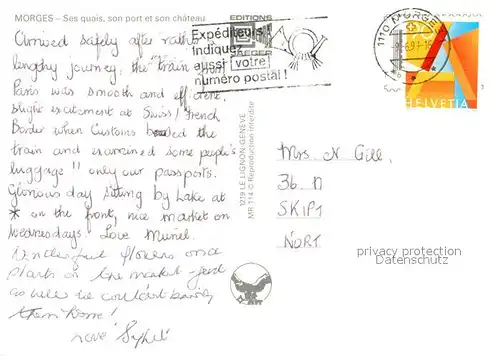 MORGES – Ses quais, son port et son château
EDITIONS
JAEGER
Expéditeurs!
Indiquez
aussi votre
numéro postal!
1110 MORGES
HELVETIA
Arrived safely after rather a
lengthy journey, the train from
Paris was smooth and efficient,
slight excitement at Swiss/French
Border when Customs the
train and examined some people's
luggage!! only our passports.
Glorious day sitting by Lake at
* on the front, nice market on
Wednesdays. Love Muriel.
Wonderful flowers and
plants on the market - just
as well we couldn't bring
them home!
Love Sybil
1219 LE LIGNON-GENÈVE
MR 114 © Reproduction interdite
Mrs. N Gill,
36. 
SKIPT
NORT
privacy protection
Datenschutz